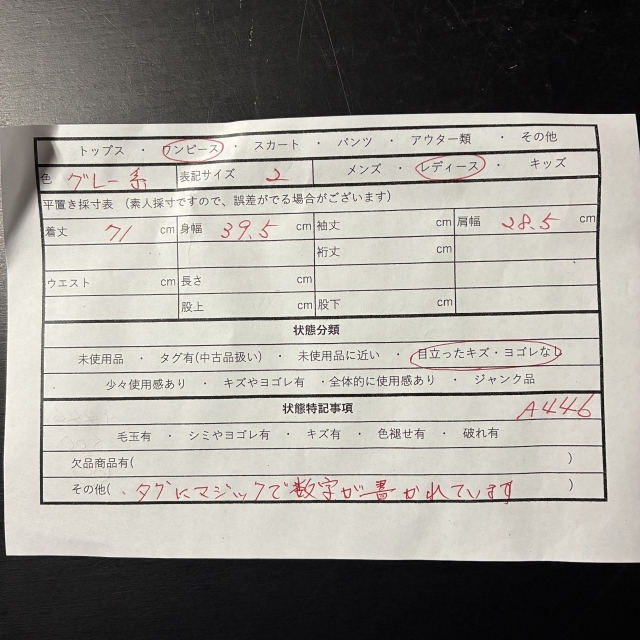 トップス ・ ワンピース ・ スカート ・ パンツ ・ アウター類 ・ その他
色 グレー系 表記サイズ 2 メンズ ・ レディース ・ キッズ
平置き採寸表 （素人採寸ですので、誤差がでる場合がございます）
着丈 71 cm 身幅 39.5 cm 袖丈 cm 肩幅 28.5 cm
裄丈 cm
ウエスト cm 長さ cm
股上 cm 股下 cm
状態分類
未使用品 ・ タグ有(中古品扱い) ・ 未使用品に近い ・ 目立ったキズ・ヨゴレなし
少々使用感あり ・ キズやヨゴレ有 ・全体的に使用感あり ・ ジャンク品
状態特記事項 A446
毛玉有 ・ シミやヨゴレ有 ・ キズ有 ・ 色褪せ有 ・ 破れ有
欠品商品有( )
その他( ・タグにマジックで数字が書かれています )